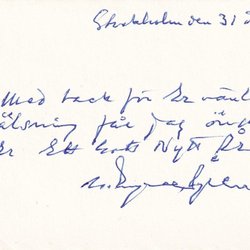 Stockholm den 31
Med tack för Er vänl
älsning får jag öns
Er Ett Gott Nytt År